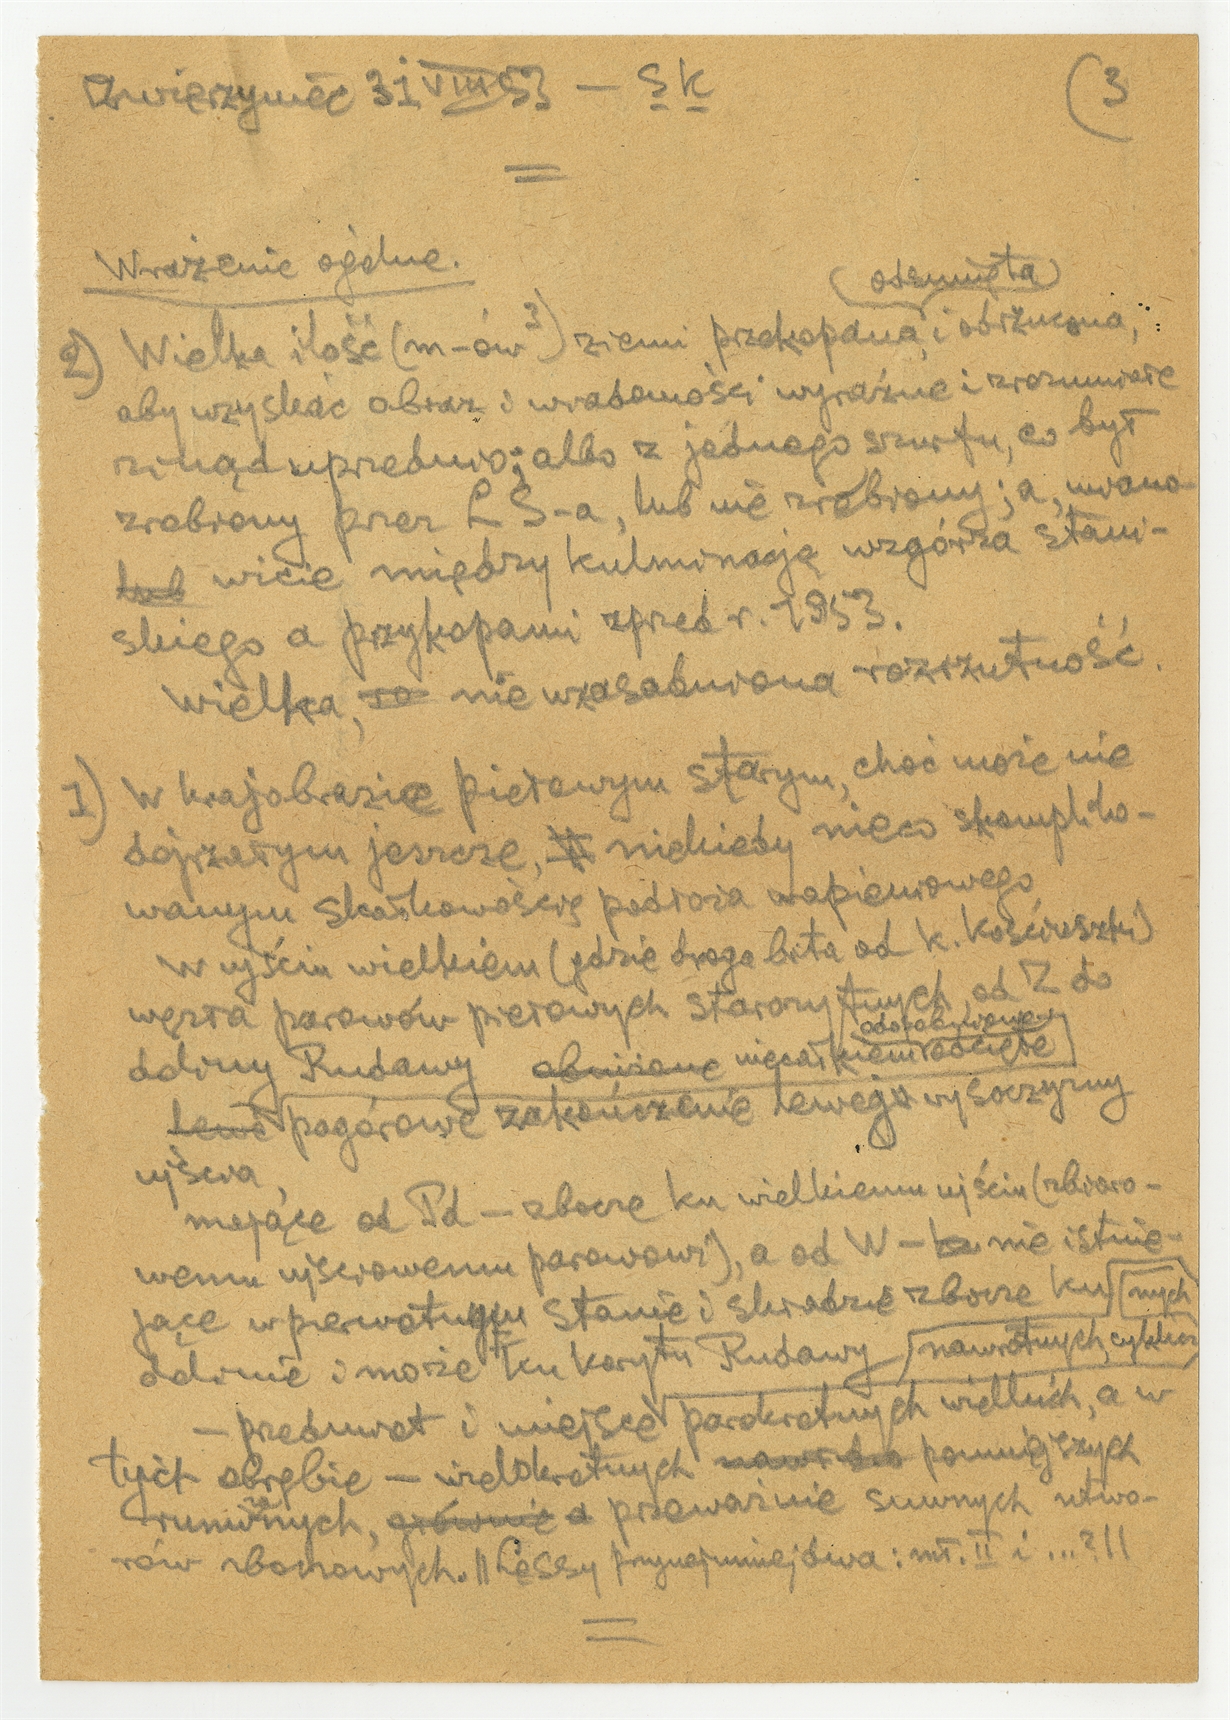 Zwierzyniec 31 VIII 53 – Sk (3
Wrażenie ogólne.
(odsunięta)
2) Wielka ilość (m-ów 3) ziemi przekopana, i odrzucona,
aby uzyskać obraz i wiadomości wyraźne i zrozumiałe
skąd uprzednio; albo z jednego szurfu, co był
zrobiony przez LS-a, lub nie zrobiony; a, miano-
lub wicie między kulminacją wzgórza stani-
skiego a przykopami sprzed r. 1953.
Wielka, nie uzasadniona rozrzutność.
1) W krajobrazie pierwszym starym, choć może nie
dojrzałym jeszcze, niekiedy nieco skompliko-
wanym skałkowością podłoża wapiennego
W ujściu wielkiem (gdzie droga bita od k. Kościuszki)
węzła parowów starożytnych, od Z do
doliny Rudawy obniżone niecałkiem odcięte
lewe pagórowe zakończenie lewego wysoczyzny
ujścia,
mające od Pd – zbocze ku wielkiemu ujściu (zbioro-
wemu ujściowemu parowowi), a od W – nie istnie-
jące w pierwotnym stanie i zbocze ku
dolinie i może ku korytu Rudawy nawrotnych, cyklicz
nych
– przedmiot i miejsce parokrotnych wielkich, a w
tych obrębie – wielokrotnych pomniejszych
głównie a przeważnie suwnych utwo-
rów zboczowych. || Lessy przynajmniej dwa: mł. II i ...? ||